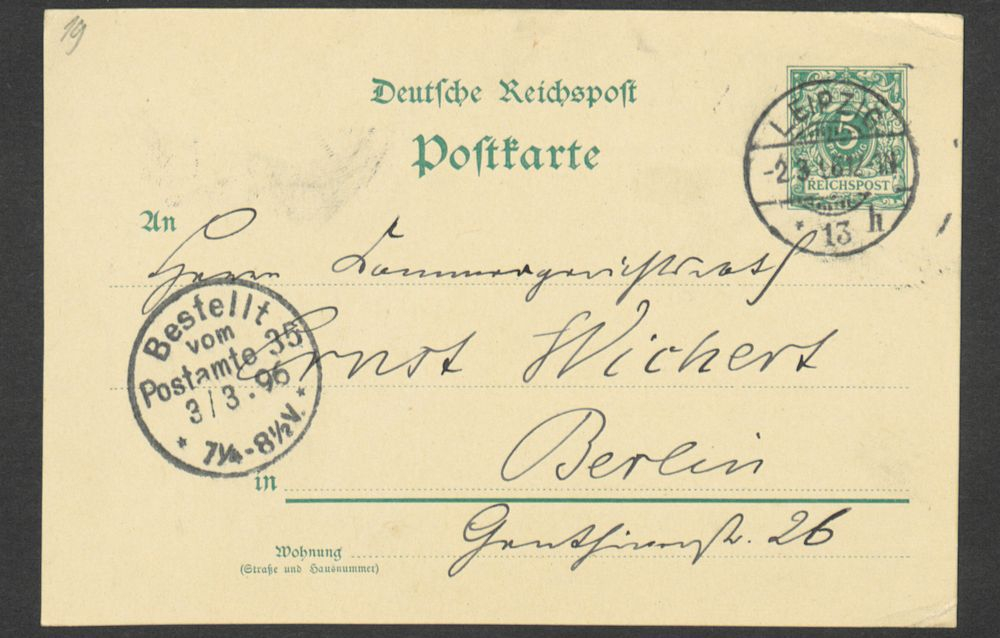 19
Deutsche Reichspost
Postkarte
5
PFENNIG
REICHSPOST
LEIPZIG
-2 3 96 12-1N
* 13 h
An
Herrn Kammergerichtsrath
Ernst Wichert
Bestellt
vom
Postamte 35
3/3.96
* 7¼-8½V. *
in Berlin
Genthinerstr. 26
Wohnung
(Straße und Hausnummer)